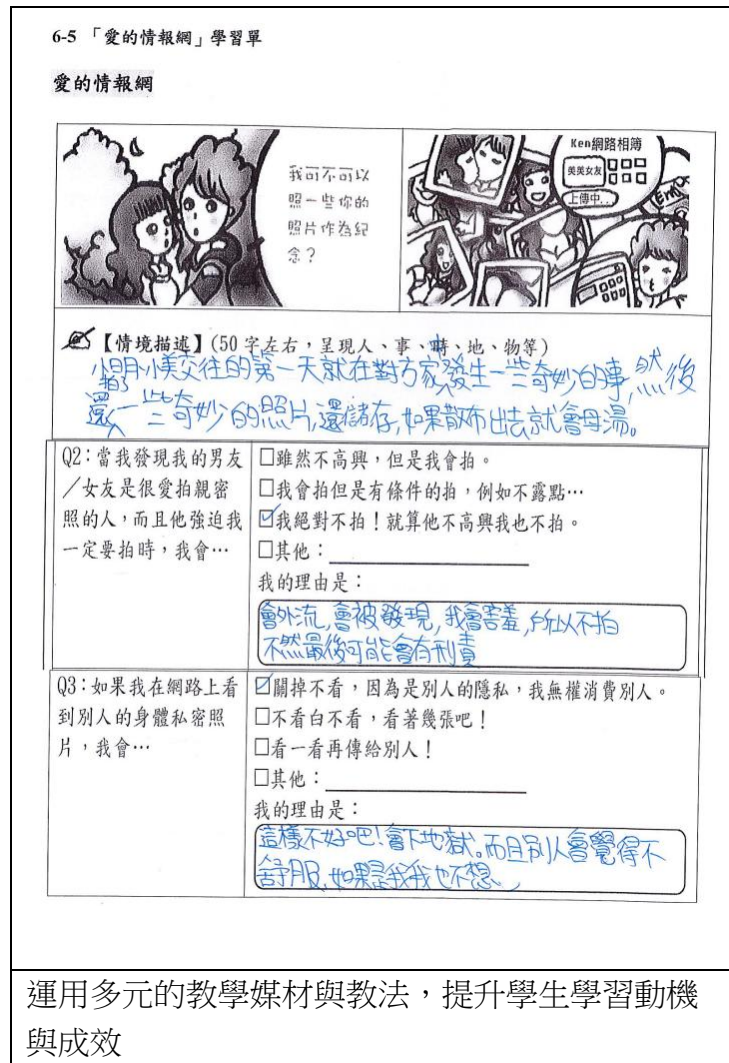 6-5 「愛的情報網」學習單
愛的情報網
我可不可以
照一些你的
照片作為紀
念？
Ken網路相簿
美美女友
上傳中..
【情境描述】(50 字左右，呈現人、事、時、地、物等)
小美交往的第一天就在對方家發生一些奇妙的事,然後
還一些奇妙的照片,還儲存,如果散布出去就會母湯。
Q2：當我發現我的男友
／女友是很愛拍親密
照的人，而且他強迫我
一定要拍時，我會…
□雖然不高興，但是我會拍。
□我會拍但是有條件的拍，例如不露點…
☑我絕對不拍！就算他不高興我也不拍。
□其他：
我的理由是：
會外流,會被發現,我會害羞,所以不拍
不然最後可能會有刑責
Q3：如果我在網路上看
到別人的身體私密照
片，我會…
☑關掉不看，因為是別人的隱私，我無權消費別人。
□不看白不看，看著幾張吧！
□看一看再傳給別人！
□其他：
我的理由是：
這樣不好吧!會下地獄。而且別人會覺得不
舒服,如果是我我也不想。
運用多元的教學媒材與教法，提升學生學習動機
與成效